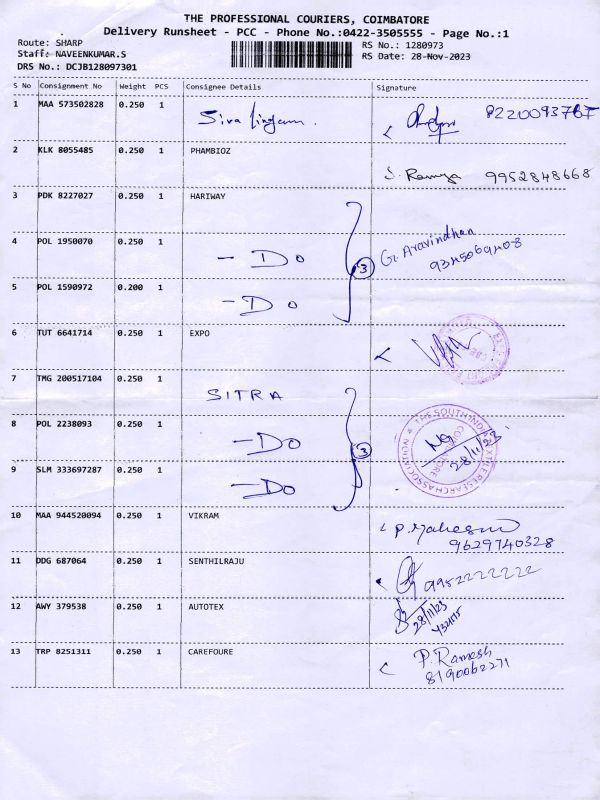 THE PROFESSIONAL COURIERS, COIMBATORE
Delivery Runsheet - PCC - Phone No.:0422-3505555 - Page No.:1
Route: SHARP
RS No.: 1280973
Staff: NAVEENKUMAR.S
RS Date: 28-Nov-2023
DRS No.: DCJB128097301
S No Consignment No Weight PCS Consignee Details Signature
1 MAA 573502828 0.250 1 Siva lingam. 8220093767
2 KLK 8055485 0.250 1 PHAMBIOZ
S. Ramya 9952848668
3 PDK 8227027 0.250 1 HARIWAY
4 POL 1950070 0.250 1 - Do 3 G. Aravindhan
9345069408
5 POL 1590972 0.200 1 - Do
6 TUT 6641714 0.250 1 EXPO
7 TMG 200517104 0.250 1 SITRA
8 POL 2238093 0.250 1 - Do 3
THE SOUTH INDIA TEXTILE RESEARCH ASSOCIATION
28/11/23
9 SLM 333697287 0.250 1 - Do
10 MAA 944520094 0.250 1 VIKRAM
9629740328
11 DDG 687064 0.250 1 SENTHILRAJU
9952222222
12 AWY 379538 0.250 1 AUTOTEX
28/11/23
13 TRP 8251311 0.250 1 CAREFOURE
P. Ramesh
8190062271